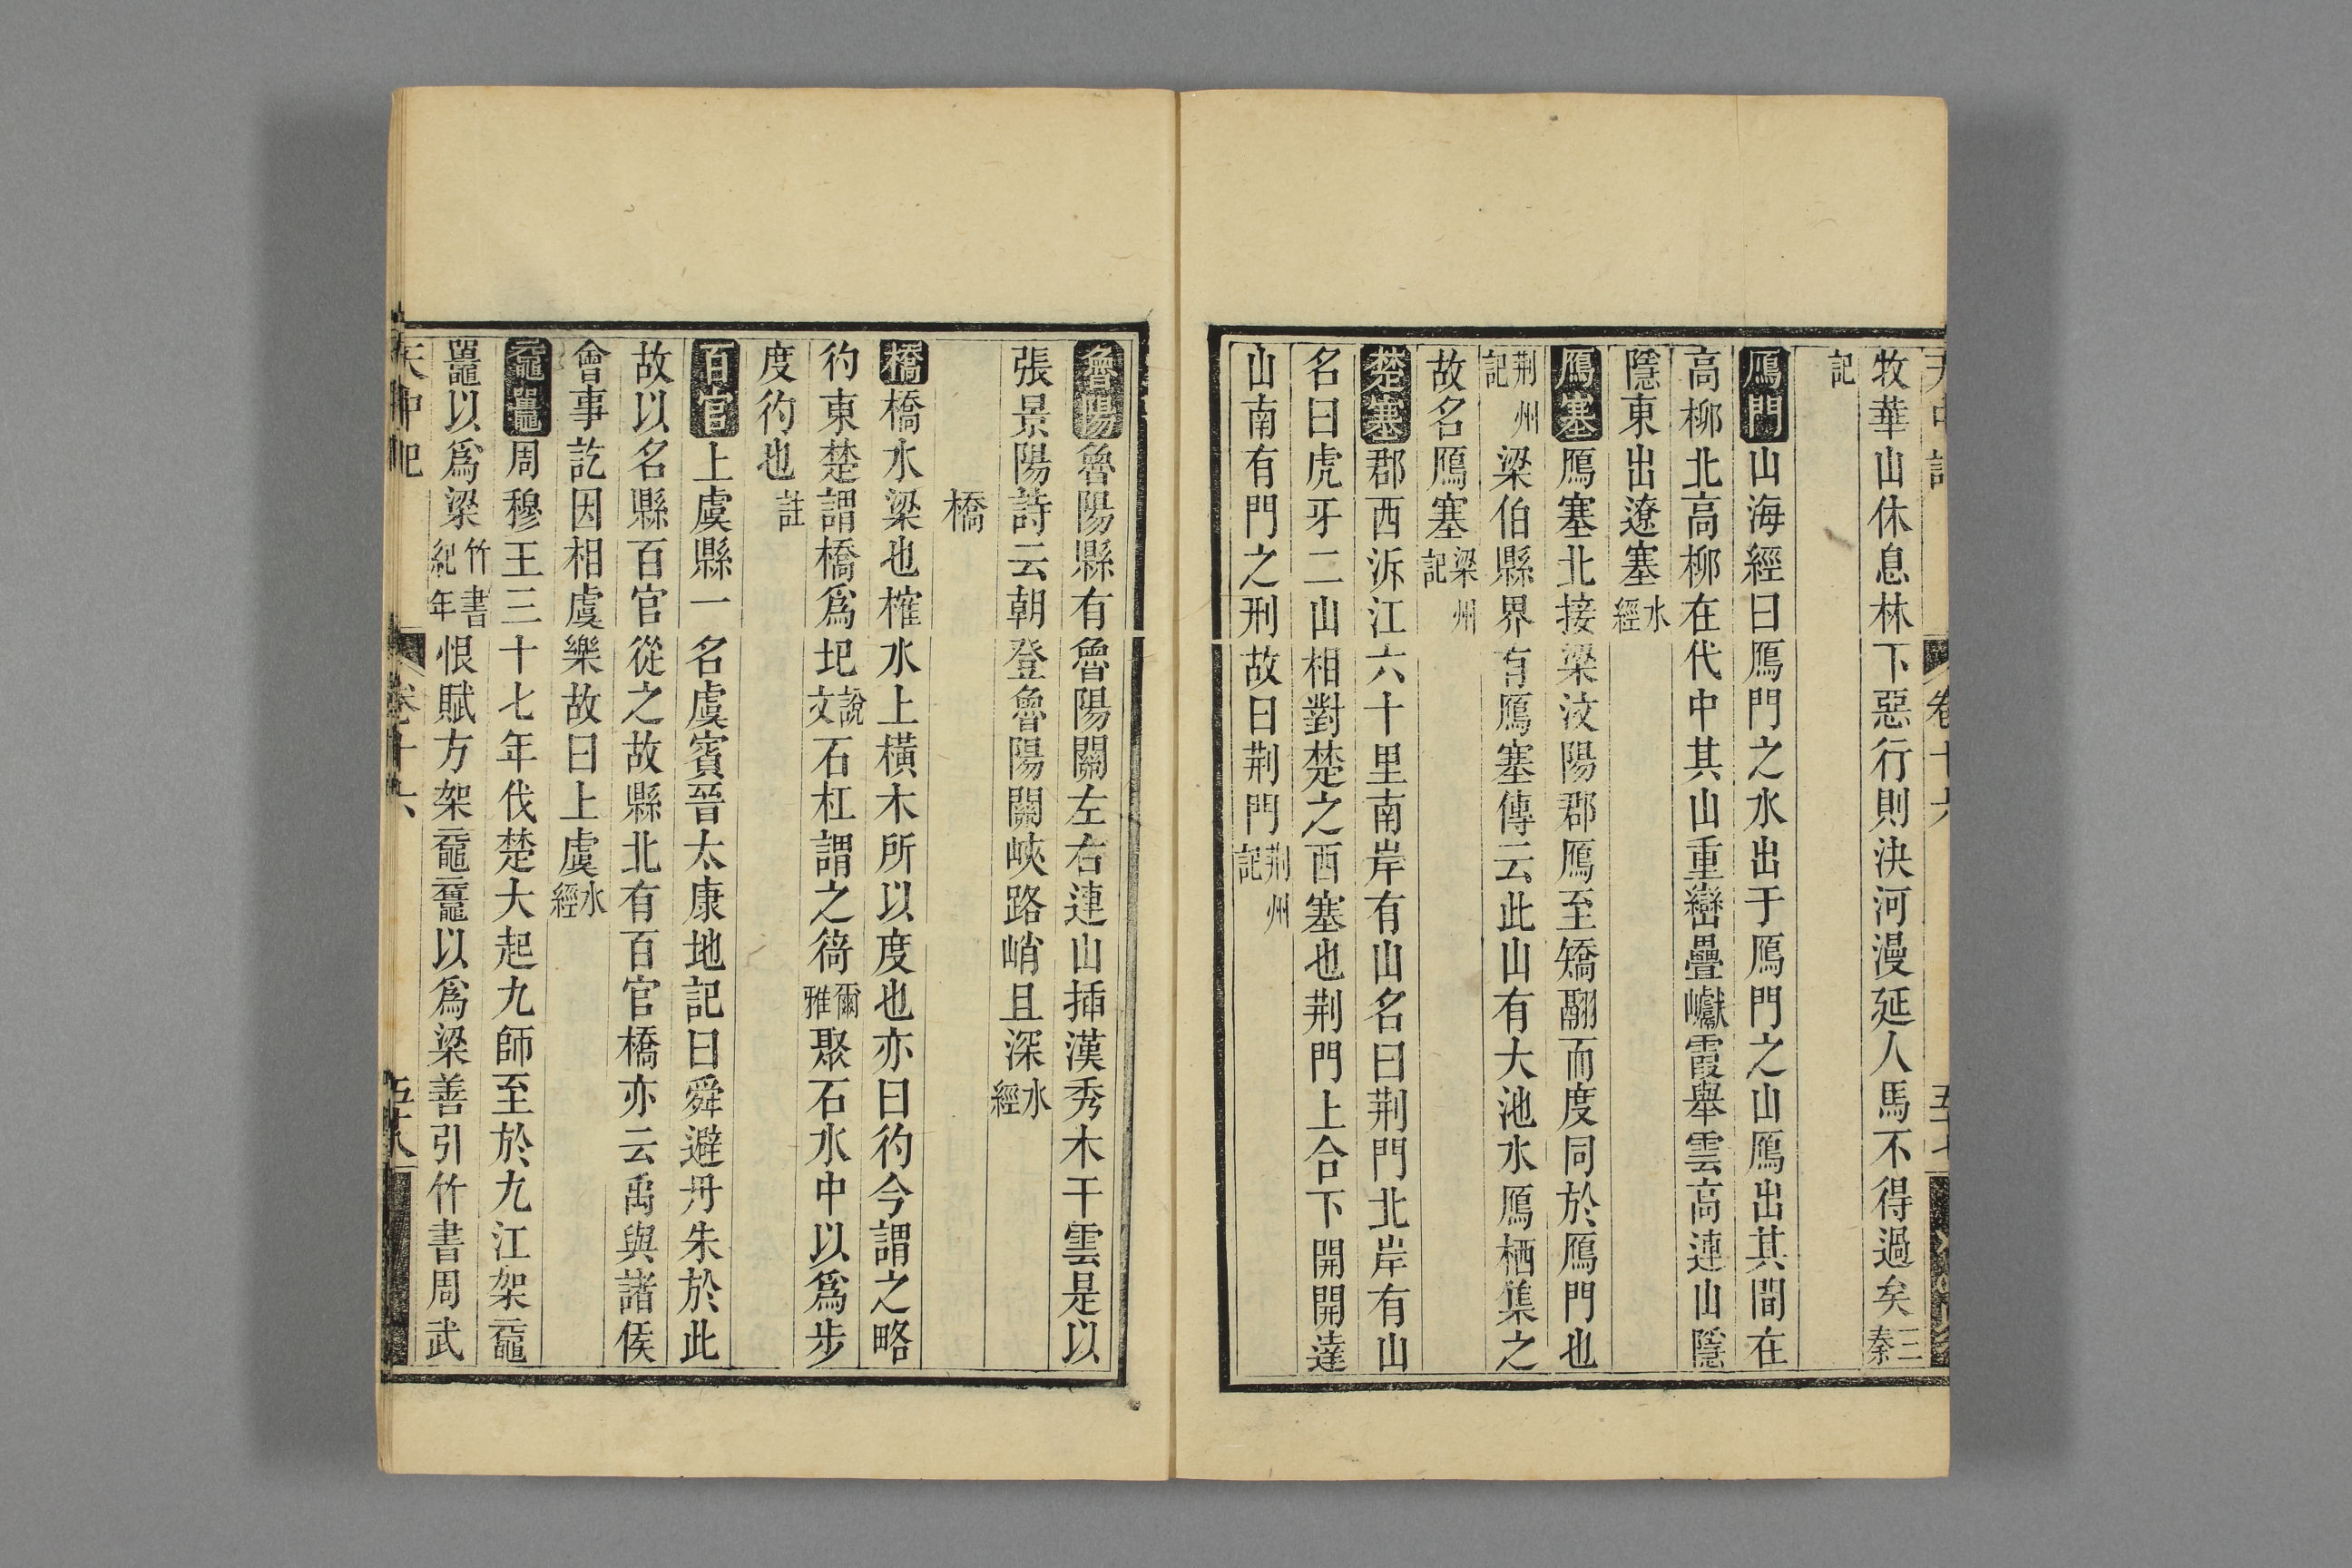 天中記 卷十六 五十七
牧華山休息林下惡行則決河漫延人馬不得過矣三秦
記
鴈門山海經曰鴈門之水出于鴈門之山鴈出其間在
高柳北高柳在代中其山重巒疊巘霞舉雲高連山隱
隱東出遼塞水經
鴈塞鴈塞北接梁汶陽郡鴈至矯翮而度同於鴈門也
荆州記梁伯縣界有鴈塞傳云此山有大池水鴈栖集之
故名鴈塞梁州記
楚塞郡西泝江六十里南岸有山名曰荆門北岸有山
名曰虎牙二山相對楚之西塞也荆門上合下開開達
山南有門之刑故曰荆門荆州記
魯陽魯陽縣有魯陽關左右連山揷漢秀木干雲是以
張景陽詩云朝登魯陽關峽路峭且深水經
橋
橋橋水梁也榷水上橫木所以度也亦曰彴今謂之略
彴東楚謂橋爲圯說文石杠謂之徛爾雅聚石水中以爲步
度彴也註
百官上虞縣一名虞賓晉太康地記曰舜避丹朱於此
故以名縣百官從之故縣北有百官橋亦云禹與諸侯
會事訖因相虞樂故曰上虞水經
黿鼉周穆王三十七年伐楚大起九師至於九江架黿
鼉以爲梁竹書紀年恨賦方架黿鼉以爲梁善引竹書周武
天中記 卷十六 五十八